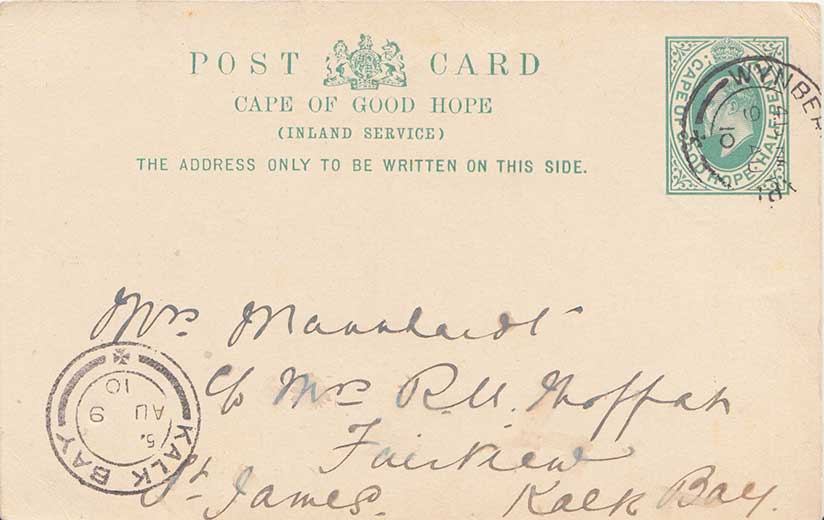 POST CARD
CAPE OF GOOD HOPE
(INLAND SERVICE)
THE ADDRESS ONLY TO BE WRITTEN ON THIS SIDE.
CAPE OF GOOD HOPE · HALFPENNY
WYNBER
10
Mrs Mannhardt
c/o Mrs R.U. Moffat
Fairview
St. James. Kalk Bay.
KALK BAY
5.
AU 9
10